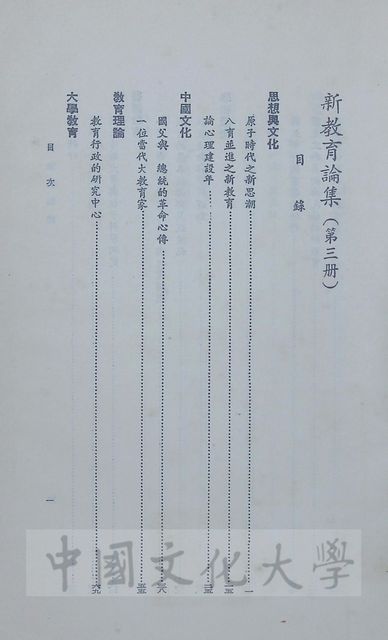 新教育論集(第三册)
目錄
思想與文化
原子時代之新思潮……一
八育並進之新教育
論心理建設年
中國文化
國父與　總統的革命心傳
一位當代大教育家
教育理論
教育行政的研究中心
大學教育
目次
一
中國文化大學